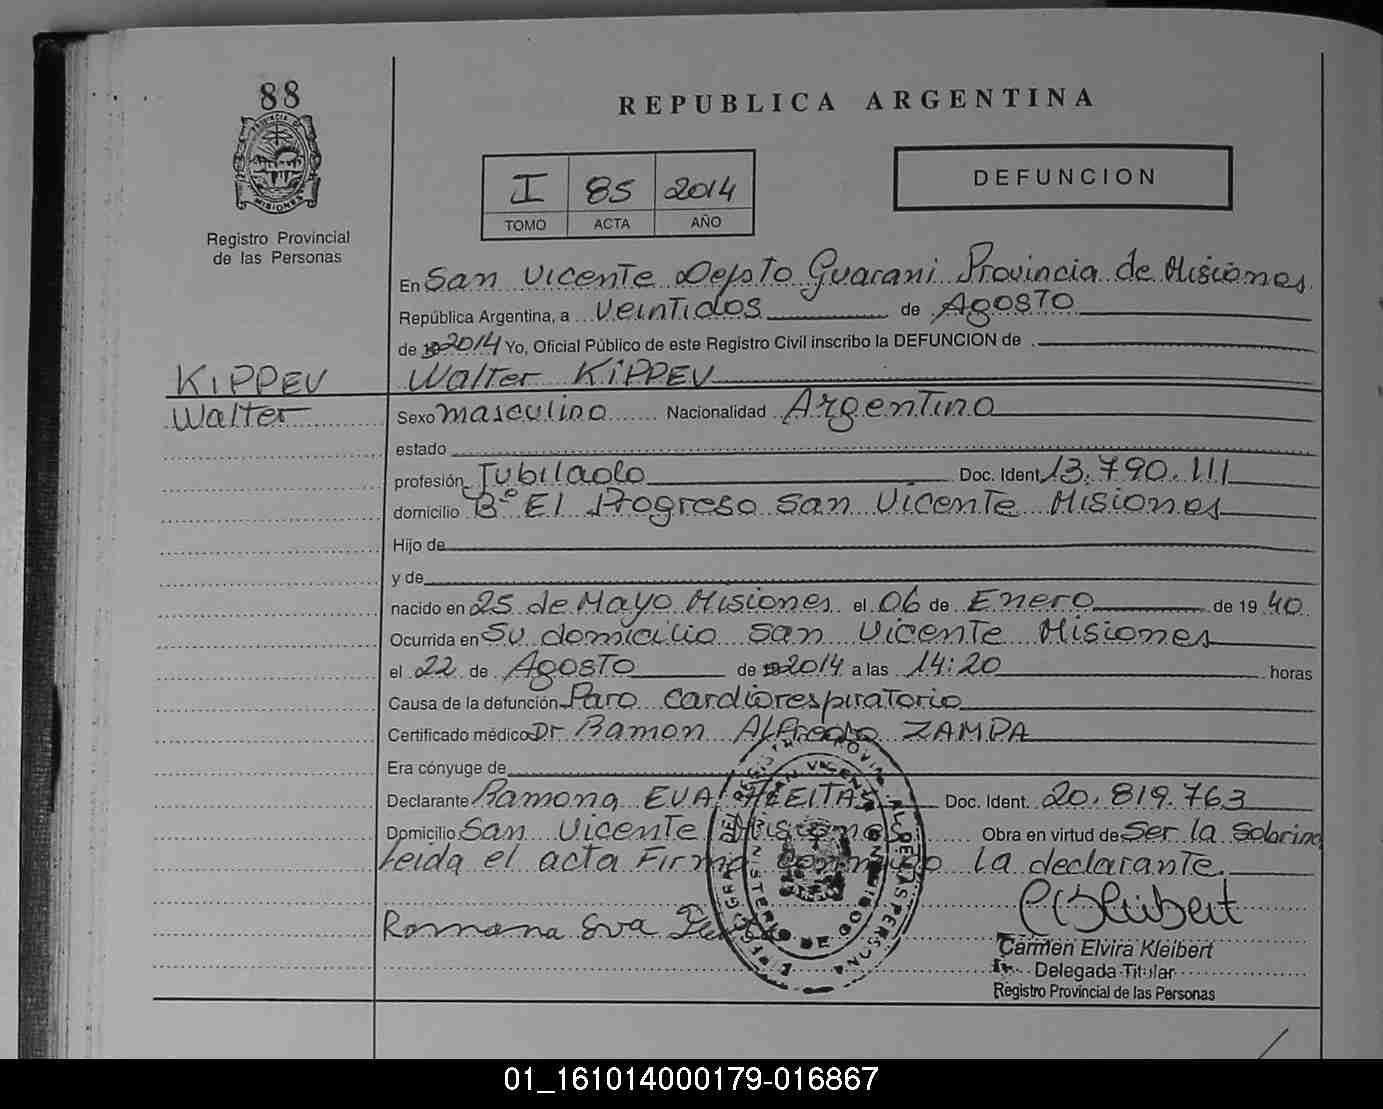 88
REPUBLICA ARGENTINA
PROVINCIA DE
MISIONES
Registro Provincial
de las Personas
I 85 2014
TOMO ACTA AÑO
DEFUNCION
En San Vicente Depto Guarani Provincia de Misiones
República Argentina, a veintidos de Agosto
de 2014 Yo, Oficial Público de este Registro Civil inscribo la DEFUNCION de
KIPPEV Walter KIPPEV
Walter
Sexo masculino Nacionalidad Argentino
estado
profesión Jubilado Doc. Ident. 13.790.111
domicilio Bº El Progreso San Vicente Misiones
Hijo de
y de
nacido en 25 de Mayo Misiones el 06 de Enero de 19 40
Ocurrida en Su domicilio San Vicente Misiones
el 22 de Agosto de 2014 a las 14:20 horas
Causa de la defunción Paro cardiorespiratorio
Certificado médico Dr Ramon Alfredo ZAMPA
Era cónyuge de
Declarante Ramona EVA Doc. Ident. 20.819.763
Domicilio San Vicente Misiones Obra en virtud de Ser la Sobrina
Leida el acta Firma conmigo La declarante.
Ramona Eva
Carmen Elvira Kleibert
Delegada Titular
Registro Provincial de las Personas
01_161014000179-016867